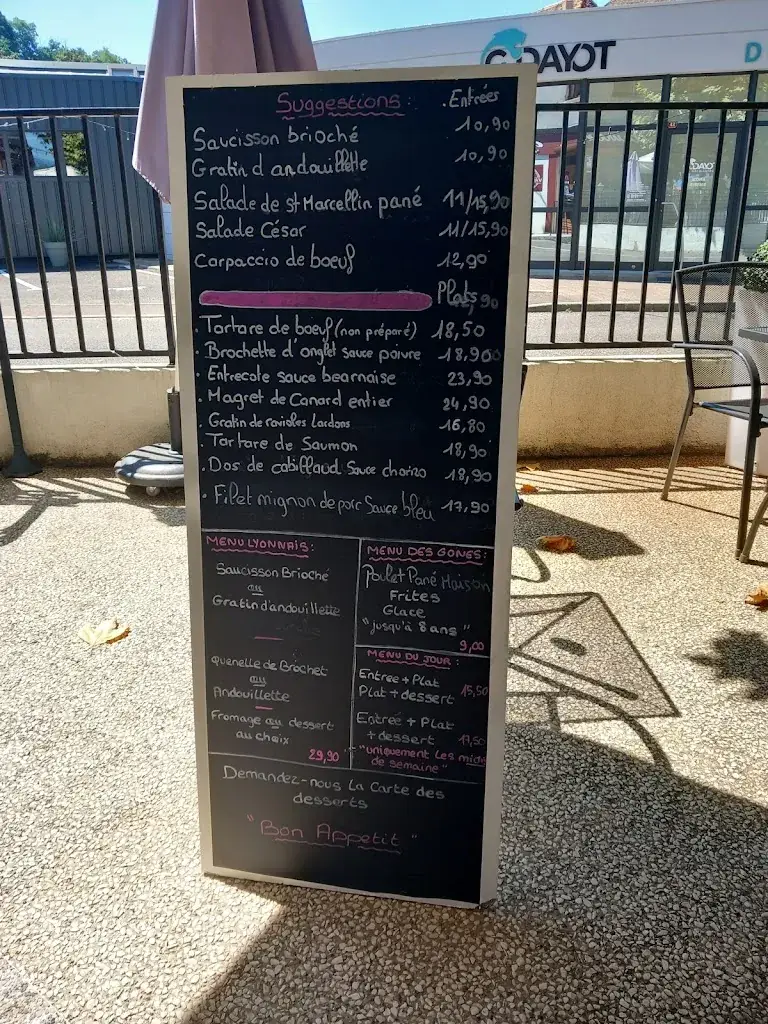 DAYOT
D
DAYOT
Suggestions: . Entrées
Saucisson brioché 10,90
Gratin d andouillette 10,90
Salade de st Marcellin pané 11/15,90
Salade César 11/15,90
Carpaccio de boeuf 12,90
Plats
. Tartare de boeuf (non préparé) 18,50
. Brochette d'onglet sauce poivre 18,90
. Entrecote sauce bearnaise 23,90
. Magret de Canard entier 24,90
. Gratin de ravioles Lardons 16,80
. Tartare de Saumon 18,90
. Dos de cabillaud Sauce chorizo 18,90
. Filet mignon de porc Sauce bleu 17,90
MENU LYONNAIS:
Saucisson Brioché
ou
Gratin d'andouillette
quenelle de Brochet
ou
Andouillette
Fromage ou dessert
au choix
29,90
MENU DES GONES:
Poulet Pané Maison
Frites
Glace
"jusqu'à 8 ans"
9,00
MENU DU JOUR:
Entree + Plat
Plat + dessert 15,50
Entreé + Plat
+ dessert 17,50
"uniquement les midi
de semaine"
Demandez-nous la Carte des
desserts
"Bon Appetit"